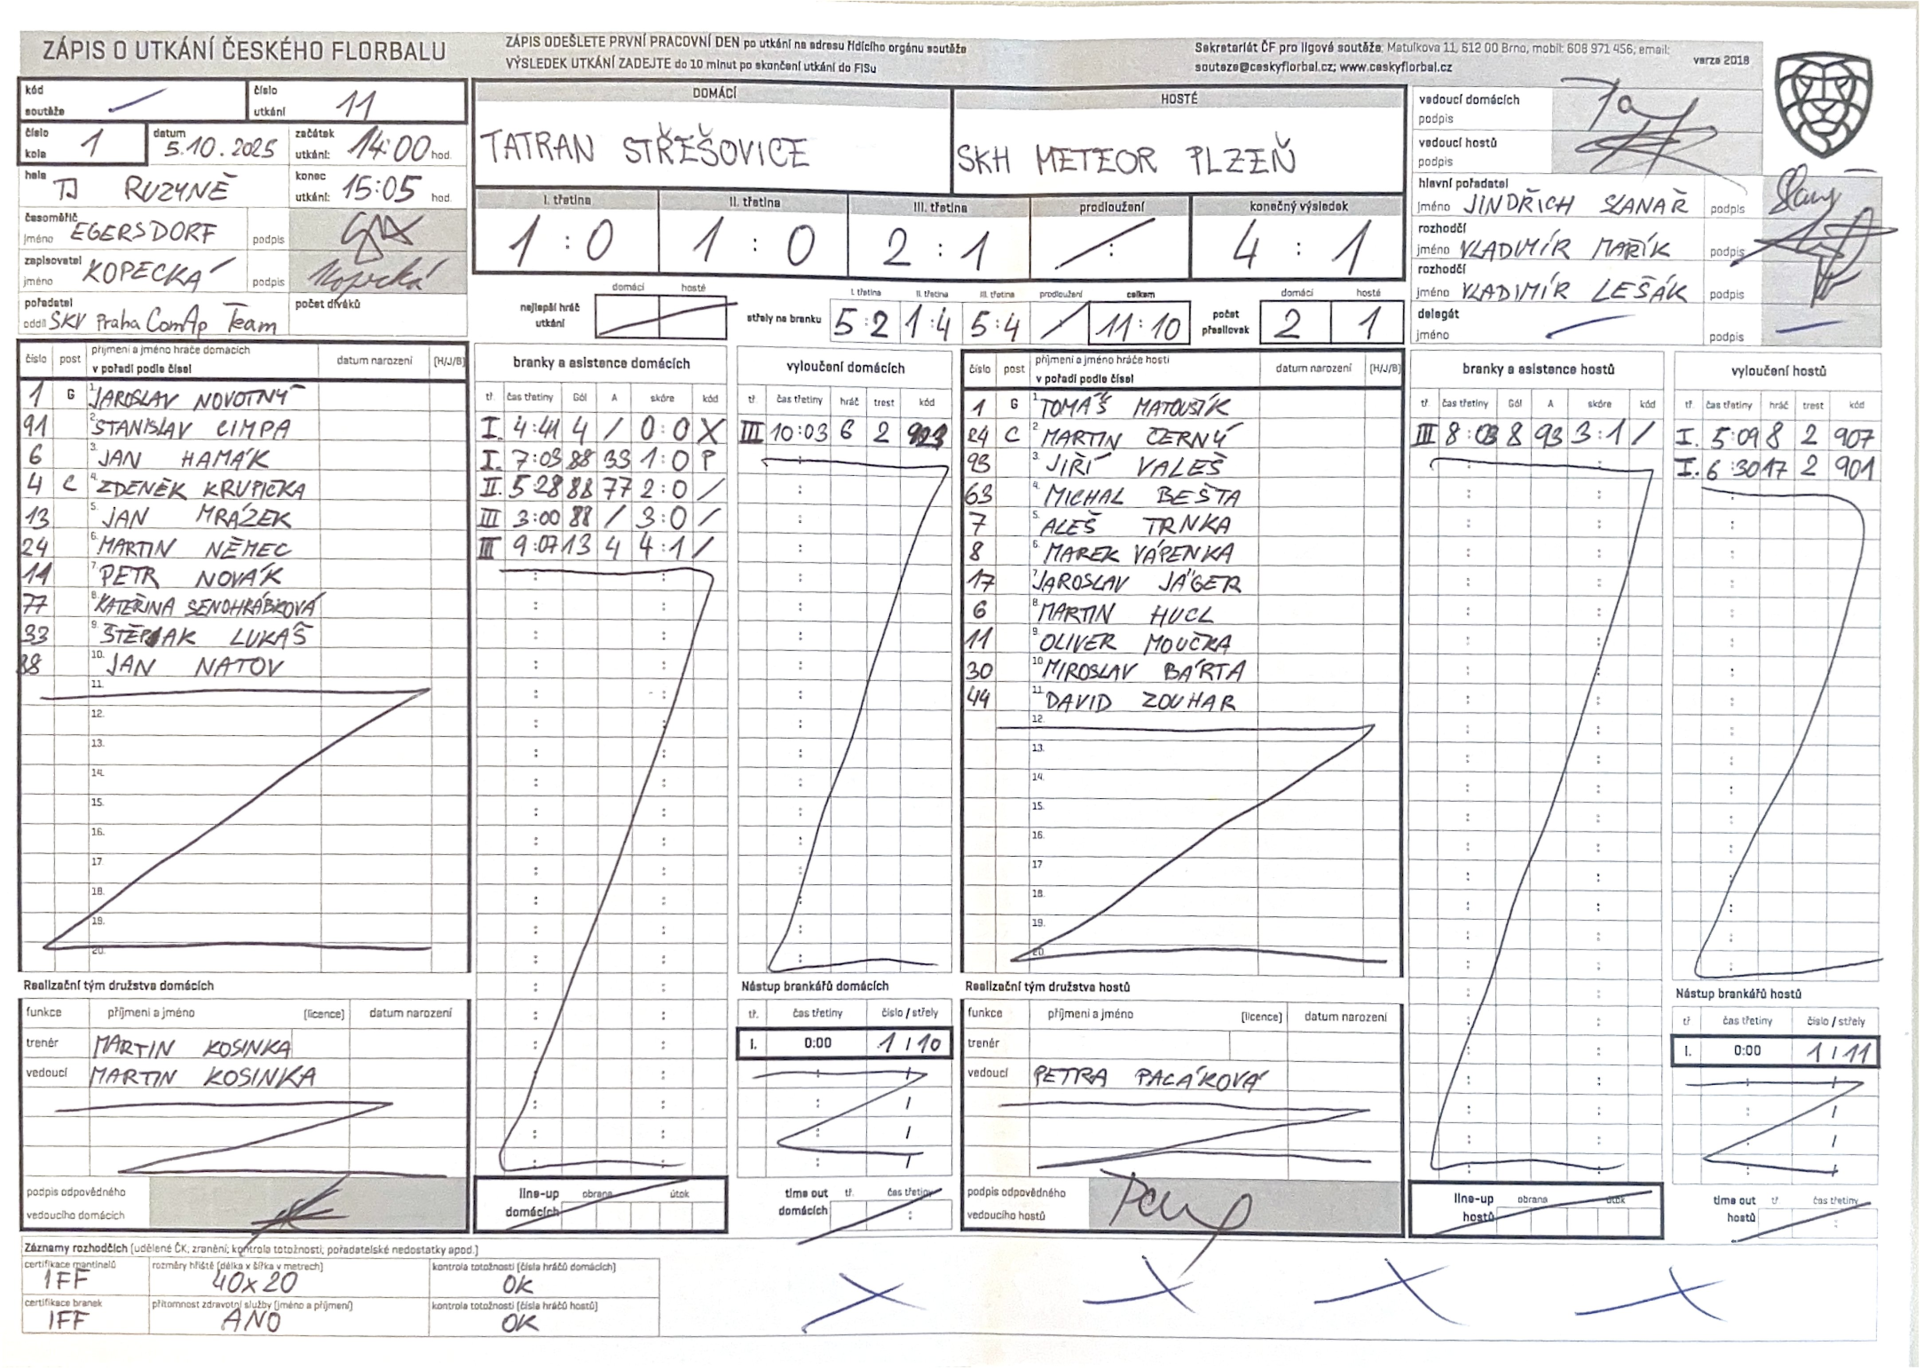 ZÁPIS O UTKÁNÍ ČESKÉHO FLORBALU
ZÁPIS ODEŠLETE PRVNÍ PRACOVNÍ DEN po utkání na adresu řídícího orgánu soutěže
VÝSLEDEK UTKÁNÍ ZADEJTE do 10 minut po skončení utkání do FISu
Sekretariát ČF pro ligové soutěže: Matulkova 11, 612 00 Brno, mobil: 608 971 456, email:
souteze@ceskyflorbal.cz; www.ceskyflorbal.cz
verze 2018
kód soutěže
číslo utkání 11
číslo kola 1
datum 5.10.2025
začátek utkání: 14:00 hod.
hala TJ RUZYNĚ
konec utkání: 15:05 hod.
časoměřič jméno EGERSDORF podpis
zapisovatel jméno KOPECKÁ podpis Kopecká
pořadatel oddíl SKV Praha ComAp Team
počet diváků
DOMÁCÍ
TATRAN STŘEŠOVICE
HOSTÉ
SKH METEOR PLZEŇ
I. třetina II. třetina III. třetina prodloužení konečný výsledek
1 : 0 1 : 0 2 : 1 : 4 : 1
nejlepší hráč utkání domácí hosté
střely na branku I. třetina II. třetina III. třetina prodloužení celkem
5:2 1:4 5:4 11:10
počet přesilovek domácí hosté
2 1
vedoucí domácích podpis
vedoucí hostů podpis
hlavní pořadatel jméno JINDŘICH SLANAŘ podpis
rozhodčí jméno VLADIMÍR MAŘÍK podpis
rozhodčí jméno VLADIMÍR LEŠÁK podpis
delegát jméno podpis
číslo post příjmení a jméno hráče domácích v pořadí podle čísel datum narození (H/J/B)
1 G 1. JAROSLAV NOVOTNÝ
91 2. STANISLAV CIMPA
6 3. JAN HAMÁK
4 C 4. ZDENĚK KRUPIČKA
13 5. JAN MRÁZEK
24 6. MARTIN NĚMEC
11 7. PETR NOVÁK
77 8. KATEŘINA SENOHRÁBKOVÁ
33 9. ŠTĚPÁK LUKÁŠ
88 10. JAN NATOV
11.
12.
13.
14.
15.
16.
17.
18.
19.
20.
branky a asistence domácích
tř. čas třetiny Gól A skóre kód
I. 4:41 4 / 0:0 X
I. 7:03 88 33 1:0 P
II. 5 28 88 77 2:0 /
III 3:00 88 / 3:0 /
III 9:07 13 4 4:1 /
vyloučení domácích
tř. čas třetiny hráč trest kód
III 10:03 6 2 923
číslo post příjmení a jméno hráče hostí v pořadí podle čísel datum narození (H/J/B)
1 G 1. TOMÁŠ MATOUŠÍK
24 C 2. MARTIN ČERNÝ
93 3. JIŘÍ VALEŠ
63 4. MICHAL BEŠTA
7 5. ALEŠ TRNKA
8 6. MAREK VÁPENKA
17 7. JAROSLAV JÄGER
6 8. MARTIN HUCL
11 9. OLIVER MOUČKA
30 10. MIROSLAV BÁRTA
44 11. DAVID ZOUHAR
12.
13.
14.
15.
16.
17
18.
19.
20.
branky a asistence hostů
tř. čas třetiny Gól A skóre kód
III 8:03 8 93 3:1 /
vyloučení hostů
tř. čas třetiny hráč trest kód
I. 5:09 8 2 907
I. 6:30 17 2 901
Realizační tým družstva domácích
funkce příjmení a jméno (licence) datum narození
trenér MARTIN KOSINKA
vedoucí MARTIN KOSINKA
podpis odpovědného vedoucího domácích
line-up domácích obrana útok
Nástup brankářů domácích
tř. čas třetiny číslo / střely
I. 0:00 1 / 10
time out domácích tř. čas třetiny
Realizační tým družstva hostů
funkce příjmení a jméno (licence) datum narození
trenér
vedoucí PETRA PACÁKOVÁ
podpis odpovědného vedoucího hostů
line-up hostů obrana útok
Nástup brankářů hostů
tř čas třetiny číslo / střely
I. 0:00 1 / 11
time out hostů tř čas třetiny
Záznamy rozhodčích (udělené ČK, zranění, kontrola totožnosti, pořadatelské nedostatky apod.)
certifikace mantinelů IFF
rozměry hřiště (délka x šířka v metrech) 40x20
kontrola totožnosti (čísla hráčů domácích) OK
certifikace branek IFF
přítomnost zdravotní služby (jméno a příjmení) ANO
kontrola totožnosti (čísla hráčů hostů) OK